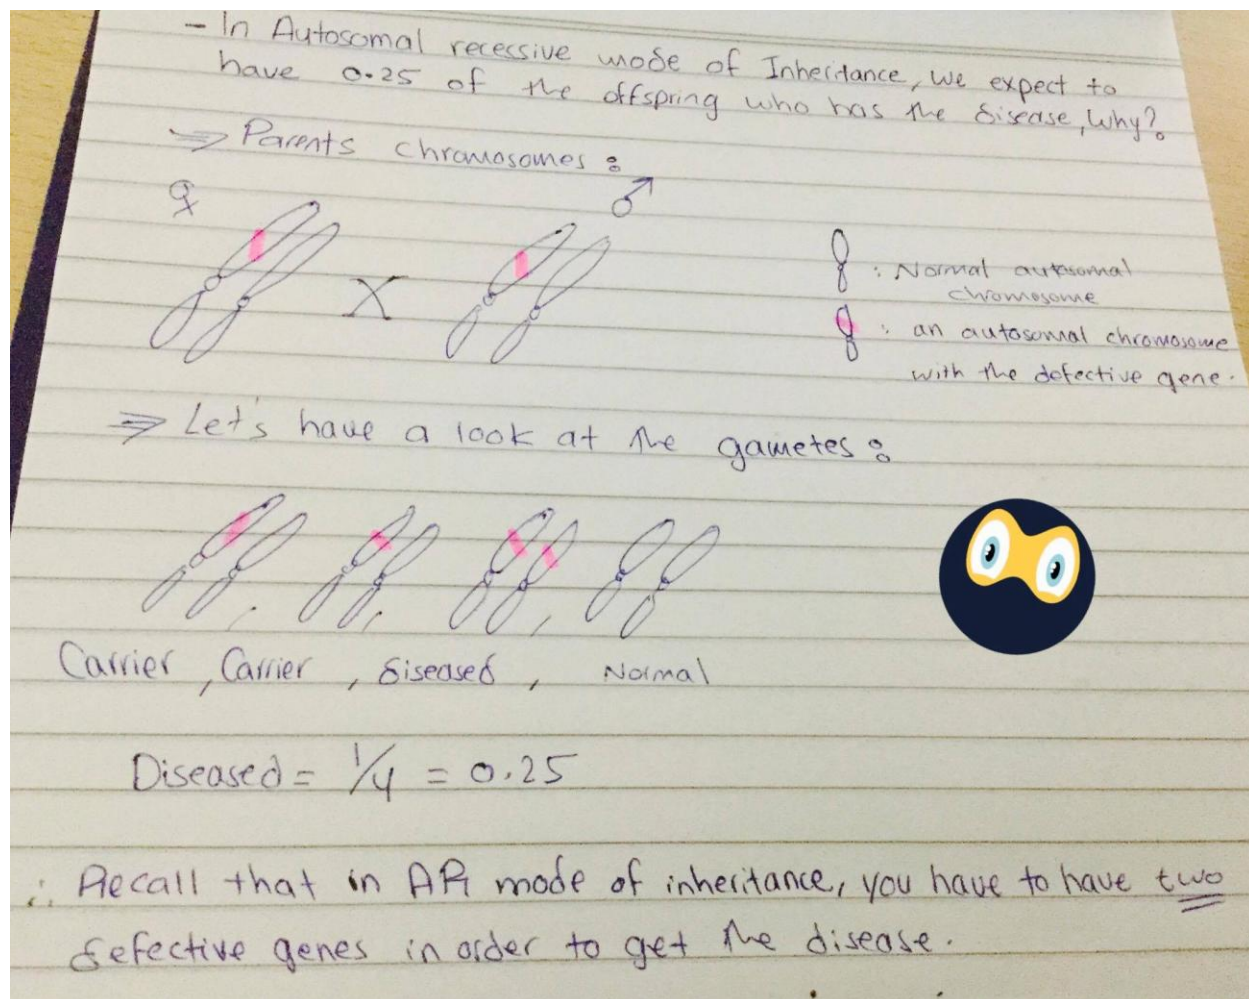 - In Autosomal recessive mode of Inheritance, we expect to
have 0.25 of the offspring who has the disease, Why?
⇒ Parents chromosomes :
♀ ♂
X
: Normal autosomal
chromosome
: an autosomal chromosome
with the defective gene.
⇒ Let's have a look at the gametes :
, , ,
Carrier , Carrier , diseased , Normal
Diseased = 1/4 = 0.25
∴ Recall that in AR mode of inheritance, you have to have two
defective genes in order to get the disease.